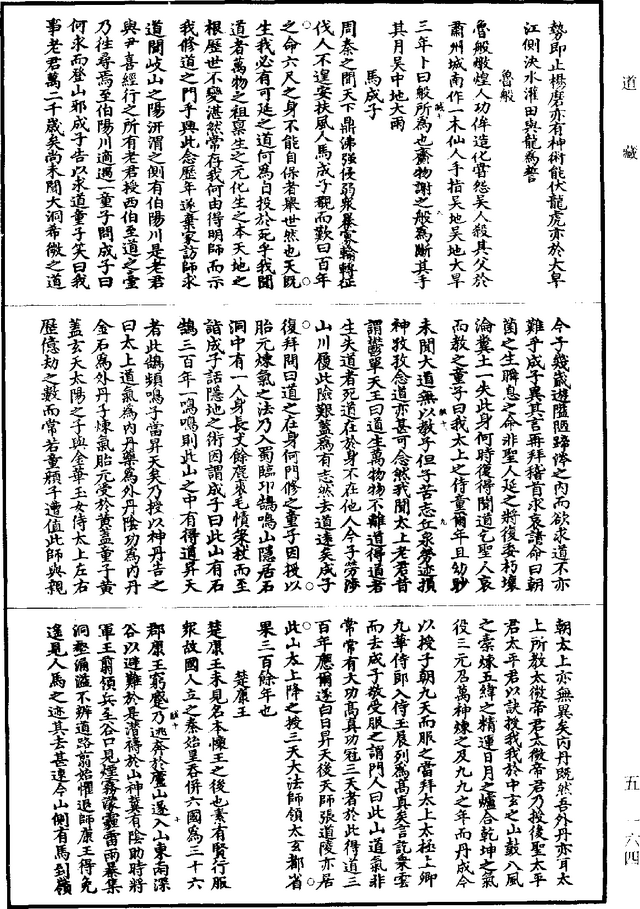 道藏
五一六四
勢即止楊磨亦有神術能伏龍虎亦於大旱
江側決水灌田與龍為誓
魯般
魯般燉煌人功侔造化嘗怨吳人殺其父於
肅州城南作一木仙人手指吳地吳地大旱
三年卜曰般所為也齎物謝之般為斷其手
其月吳中地大雨
馬成子
周秦之間天下鼎沸強侵弱衆暴寡輪轉征
伐人不遑安扶風人馬成子覩而歎曰百年
之命六尺之身不能自保者舉世然也天既
生我必有可延之道何為自投於死乎我聞
道者萬物之祖稟生之元化生之本天地之
根歷世不變湛然常存我何由得明師而示
我修道之門乎興此念歷年遂棄家訪師求
道聞岐山之陽汧渭之側有伯陽川是老君
與尹喜經行之所有老君授西伯至道之臺
乃往尋焉至伯陽川適遇一童子問成子曰
何求而登山耶成子告以求道童子笑曰我
事老君萬二千歲矣尚未聞大洞希微之道
今子幾歲遊隘陋蹄涔之內而欲求道不亦
難乎成子異其言再拜稽首求哀請命曰朝
菌之生瞬息之命非聖人延之將復委朽壤
淪糞土一失此身何時復得聞道乞聖人哀
而教之童子曰我太上之侍童爾年且幼眇
未聞大道無以教子但子苦志丘泉勞迹損
神孜孜念道亦甚可念然我聞太上老君昔
謂鬱單天王曰道生萬物物不離道得道者
生失道者死道在於身不在他人今子勞涉
山川履此險艱蓋為有志然去道遠矣成子
復拜問曰道之在身何門修之童子因授以
胎元煉氣之法乃入蜀臨卭鵠鳴山隱居石
洞中有一人身長丈餘鹿裘毛幘策杖而至
詣成子話隱地之術因謂成子曰此山有石
鵠三百年一鳴鳴則此山之中有得道昇天
者此鵠頻鳴子當昇天矣乃授以神丹告之
曰太上道氣為內丹藥為外丹陰功為內丹
金石為外丹子煉氣胎元受於黃蓋童子黃
蓋玄天太陽之子與金華玉女侍太上左右
歷億劫之數而常若童顏子遭值此師與親
朝太上亦無異矣內丹既然吾外丹亦耳太
上所教太微帝君太微帝君乃授後聖太平
君太平君以訣授我我於中玄之山鼓八風
之橐煉五緯之精運日月之爐合乾坤之氣
役三元召萬神煉之及九九之年而丹成今
以授子朝九天而服之當拜太上太極上卿
九華侍郎入侍王晨列為高真矣言訖乘雲
而去成子敬受服之謂門人曰此山道氣非
常常有大功高真功冠三天者於此得道三
百年應爾遂白日昇天後天師張道陵亦居
此山太上降之授三天大法師領太玄都省
果三百餘年也
楚康王
楚康王未見名本懷王之後也素有賢行服
衆故國人立之秦始皇呑併六國為三十六
郡康王窮蹙乃逃奔於廬山遂入山東南深
谷以避難於是潛禱於山神冀有陰助時將
軍王翦領兵至谷口見煙霧濛靄雷雨暴集
洞壑涌溢不辨道路翦始懼退師康王得免
遙見人馬之迹其去甚速今山側有馬到嶺